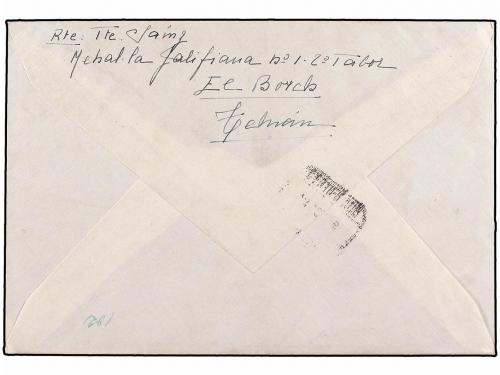 Rte: Tte. Sáinz
Mehal-la Jalifiana nº 1-2º Tabor
El Borch
Tetuán
192